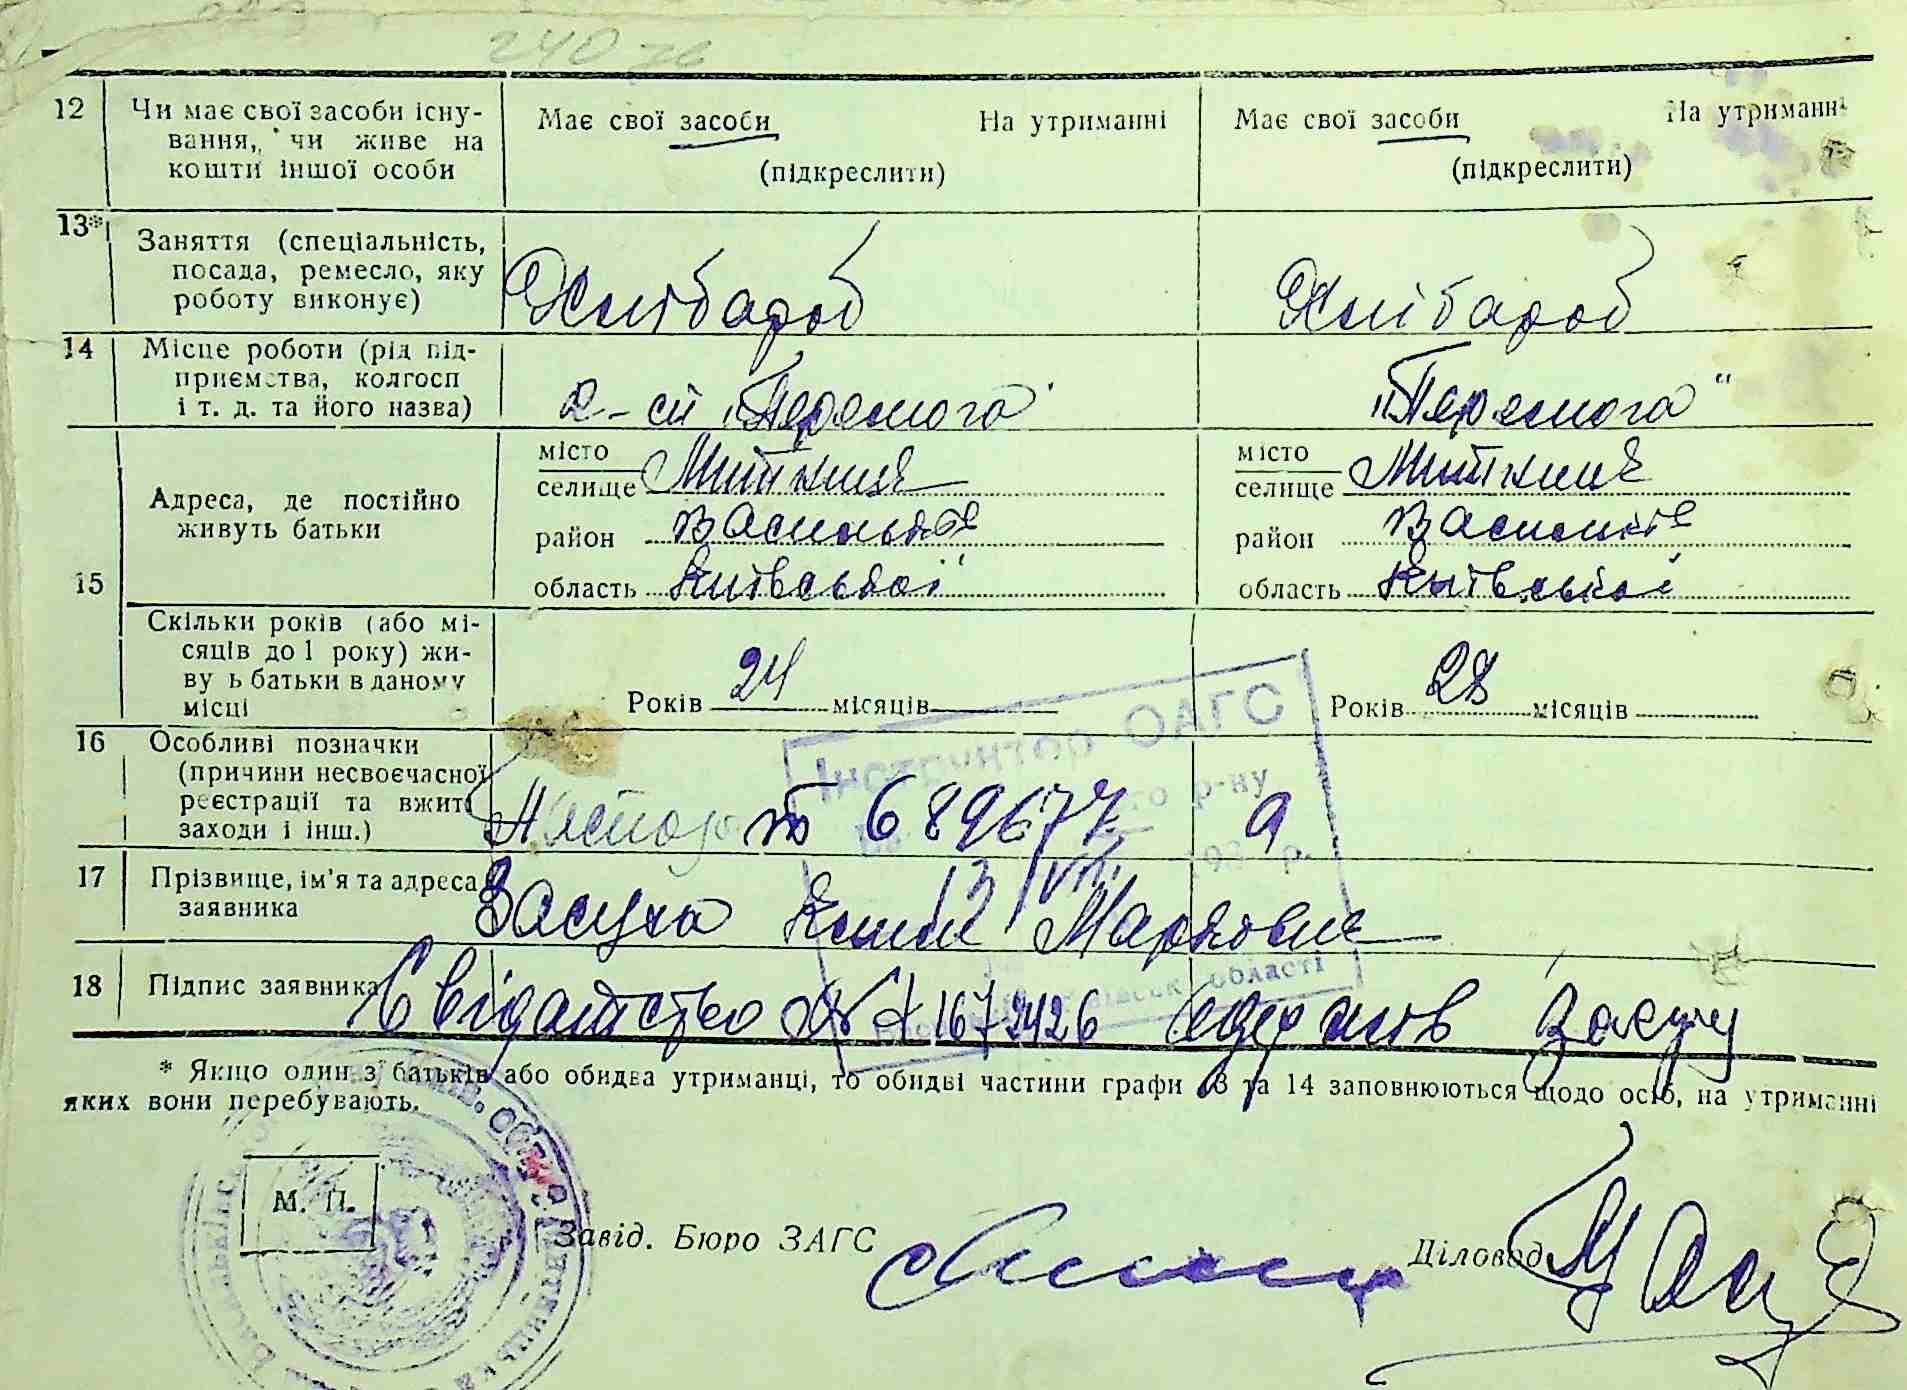 240 зв
12 Чи має свої засоби існу-
вання, чи живе на
кошти іншої особи
Має свої засоби На утриманні
(підкреслити)
Має свої засоби На утриманні
(підкреслити)
13* Заняття (спеціальність,
посада, ремесло, яку
роботу виконує)
Хлібароб
Хлібароб
14 Місце роботи (рід під-
приємства, колгосп
і т. д. та його назва)
а-сп „Перемога
„Перемога“
15 Адреса, де постійно
живуть батьки
місто
селище Митниця
район Васильків
область Київської
місто
селище Митниця
район Васильків
область Київської
Скільки років (або мі-
сяців до 1 року) жи-
ву ь батьки в даному
місці
Років 24 місяців
Років 28 місяців
16 Особливі позначки
(причини несвоєчасної
реєстрації та вжиті
заходи і інш.)
Паспорт 689677
Інструктор ОАГС
р-ну
193 р.
області
17 Прізвище, ім’я та адреса
заявника
Засуха Марковна
18 Підпис заявника
Свідоцтво № 1672426 одержав Засуху
* Якщо один з батьків або обидва утриманці, то обидві частини графи 13 та 14 заповнюються щодо осіб, на утриманні
яких вони перебувають.
М. П.
Завід. Бюро ЗАГС
Діловод